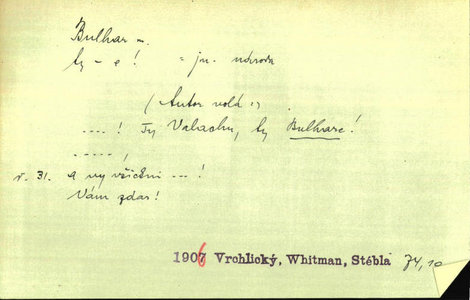 Bulhar m.
ty – e! = jm. národa
(Autor volá:)
....! Ty Valachu, ty Bulhare!
.....,
v. 31. a vy všichni ...!
Vám zdar!
1906 Vrchlický, Whitman, Stébla 74, 10